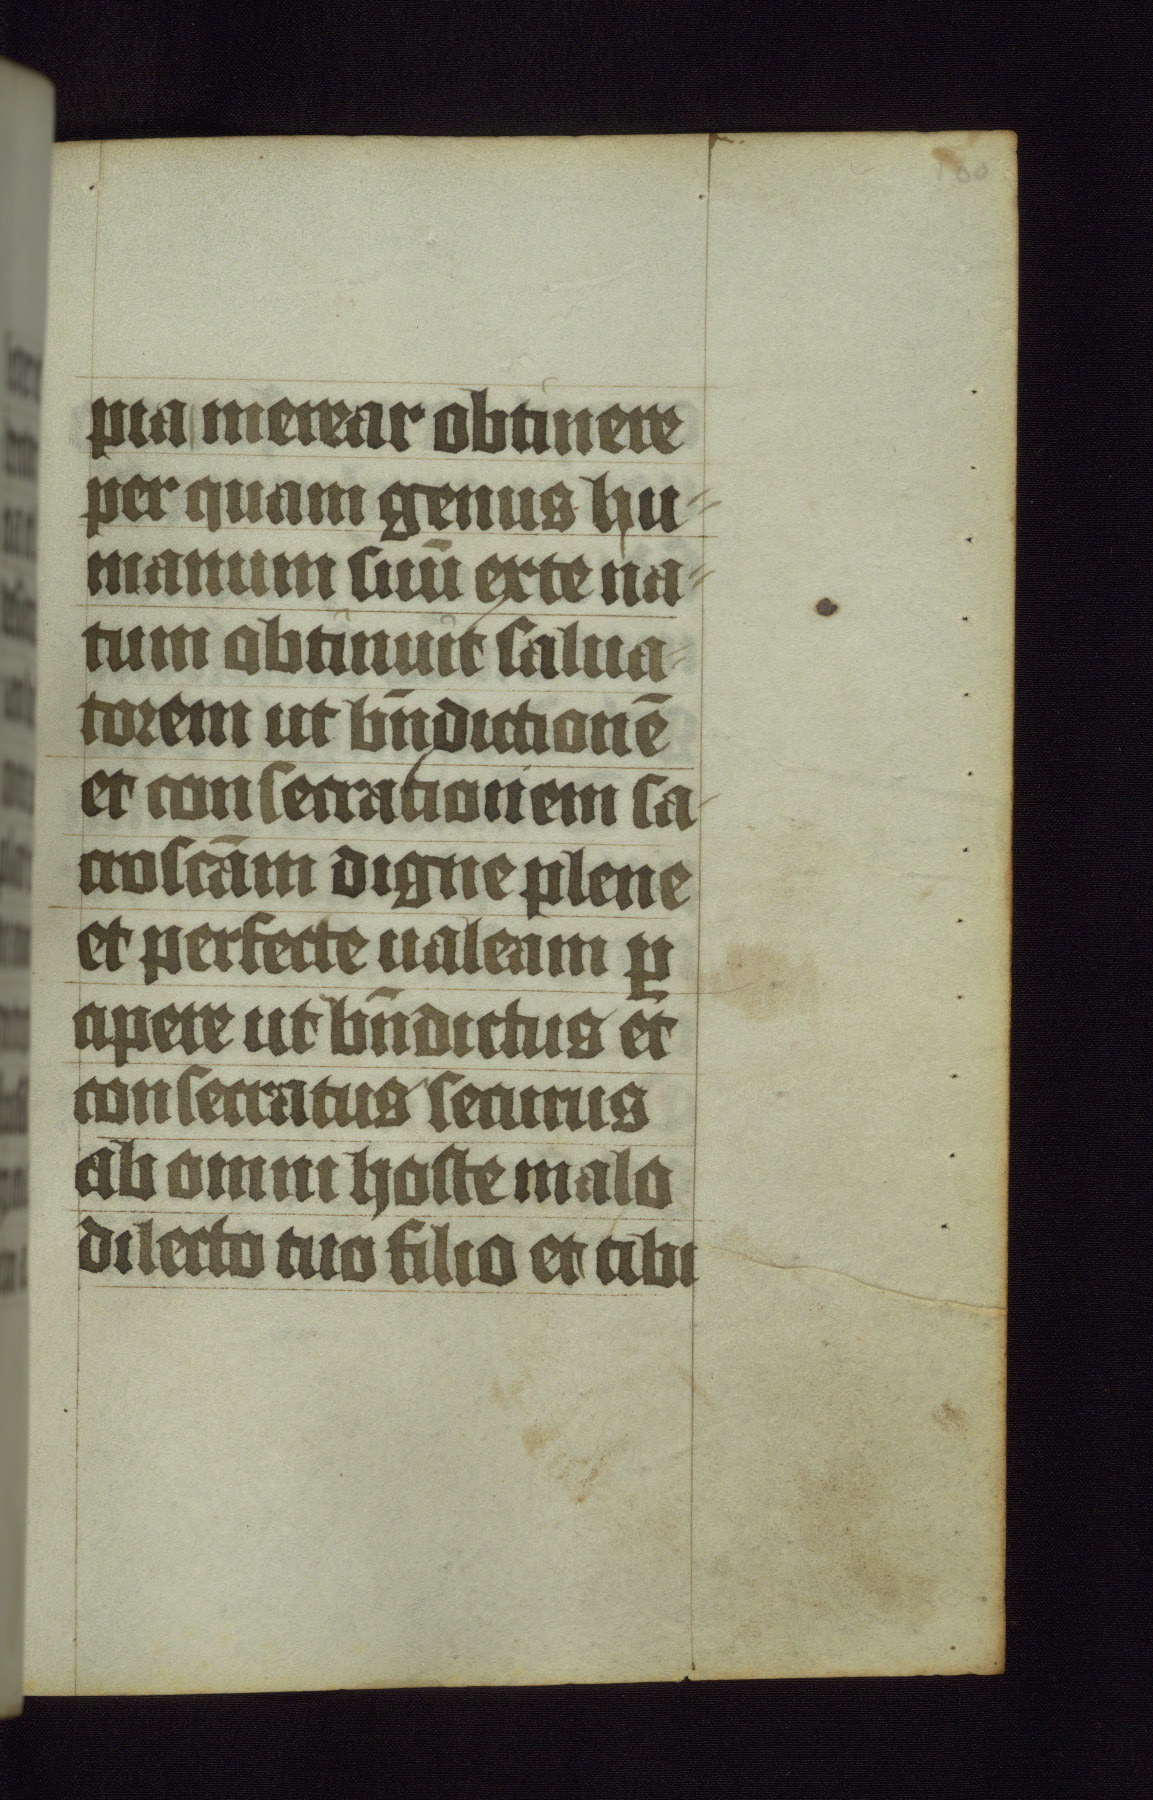 100
pia merear obtinere
per quam genus hu-
manum suū ex te na-
tum obtinuit salua-
torem ut bn̄dictionē
et consecrationem sa-
croscām digne plene
et perfecte ualeam ꝑ
cipere ut bn̄dictus et
consecratus securus
ab omni hoste malo
dilecto tuo filio et tibi